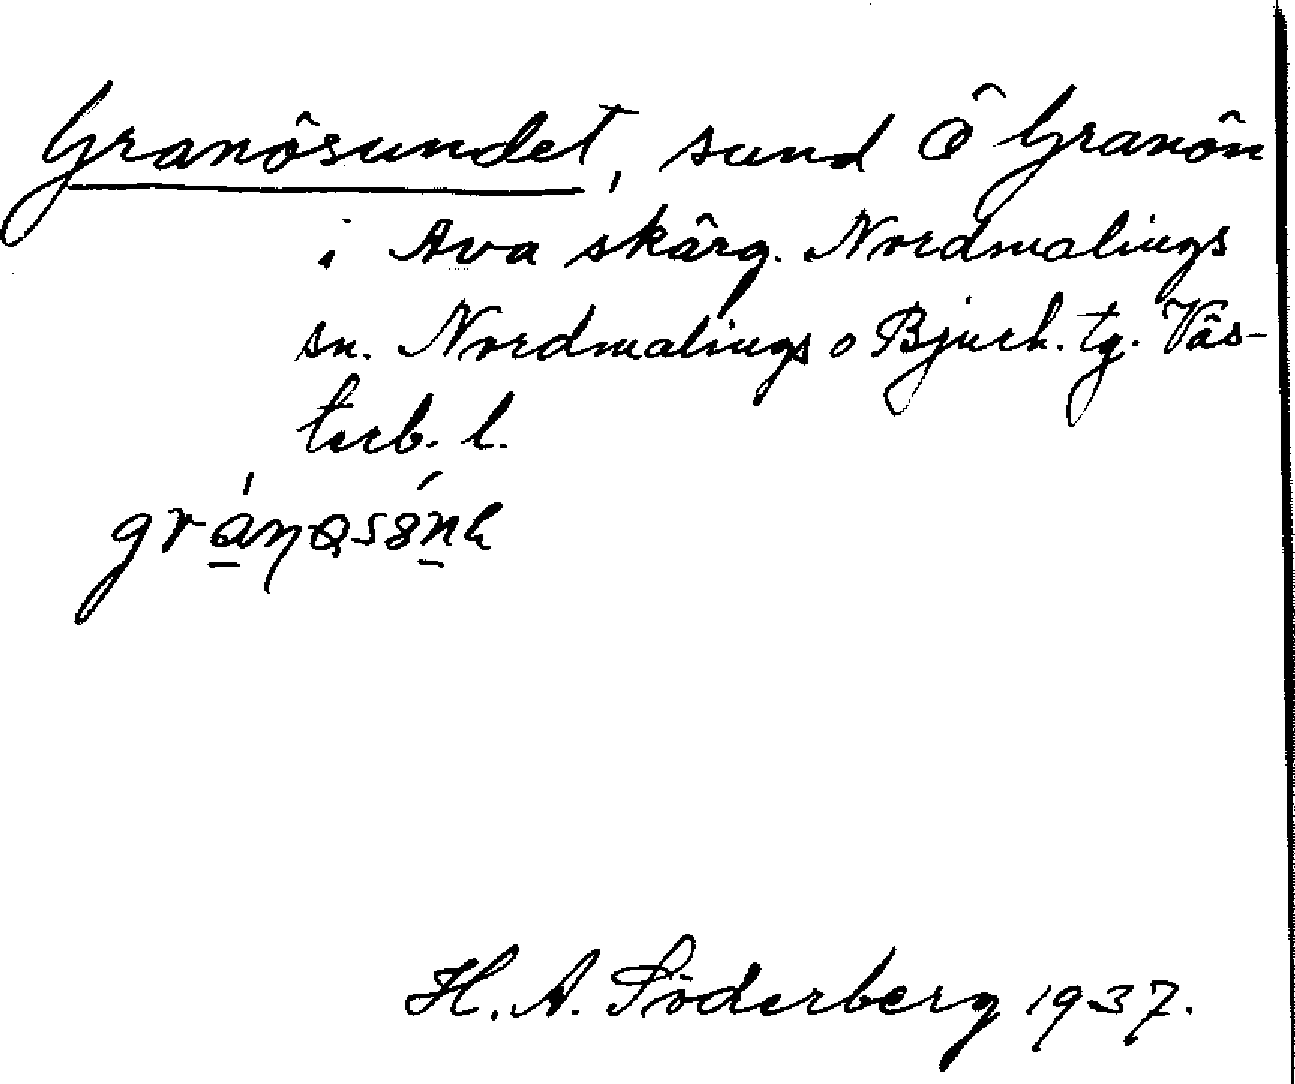 Granösundet, sund Ö Granön
i Ava skärg. Nordmalings
sn. Nordmalings o Bjurh. tg. Väs-
terb. l.
H. A. Söderberg 1937.